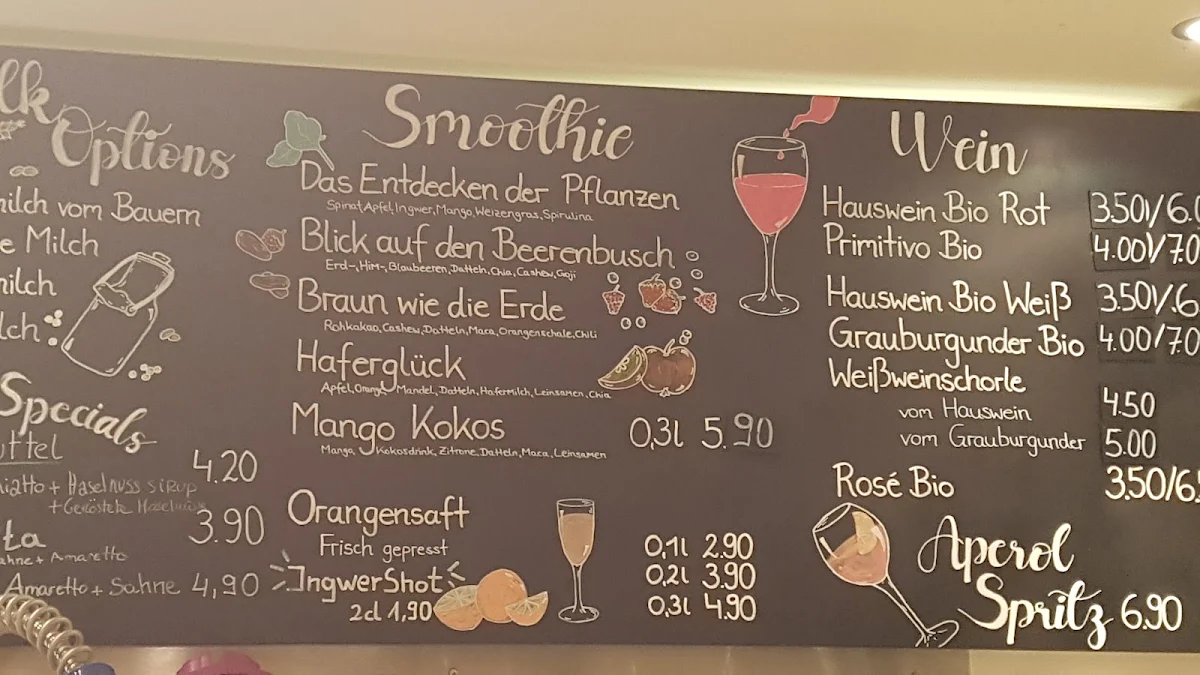 Options
vom Bauern
Milch
Specials
4.20
+ Haselnuss sirup
+ Geröstete
3.90
+ Amaretto
Amaretto + Sahne 4,90
Smoothie
Das Entdecken der Pflanzen
Spinat, Apfel, Ingwer, Mango, Weizengras, Spirulina
Blick auf den Beerenbusch
Erd-, Him-, Blaubeeren, Datteln, Chia, Cashew, Goji
Braun wie die Erde
Rohkakao, Cashew, Datteln, Maca, Orangenschale, Chili
Haferglück
Apfel, Orange, Mandel, Datteln, Hafermilch, Leinsamen, Chia
Mango Kokos 0,3l 5.90
Mango, Kokosdrink, Zitrone, Datteln, Maca, Leinsamen
Orangensaft
Frisch gepresst
0,1l 2.90
0,2l 3.90
0,3l 4.90
IngwerShot
2cl 1,90
Wein
Hauswein Bio Rot 3.50/6.0
Primitivo Bio 4.00/7.0
Hauswein Bio Weiß 3.50/6
Grauburgunder Bio 4.00/7.0
Weißweinschorle
vom Hauswein 4.50
vom Grauburgunder 5.00
Rosé Bio 3.50/6.5
Aperol
Spritz 6.90